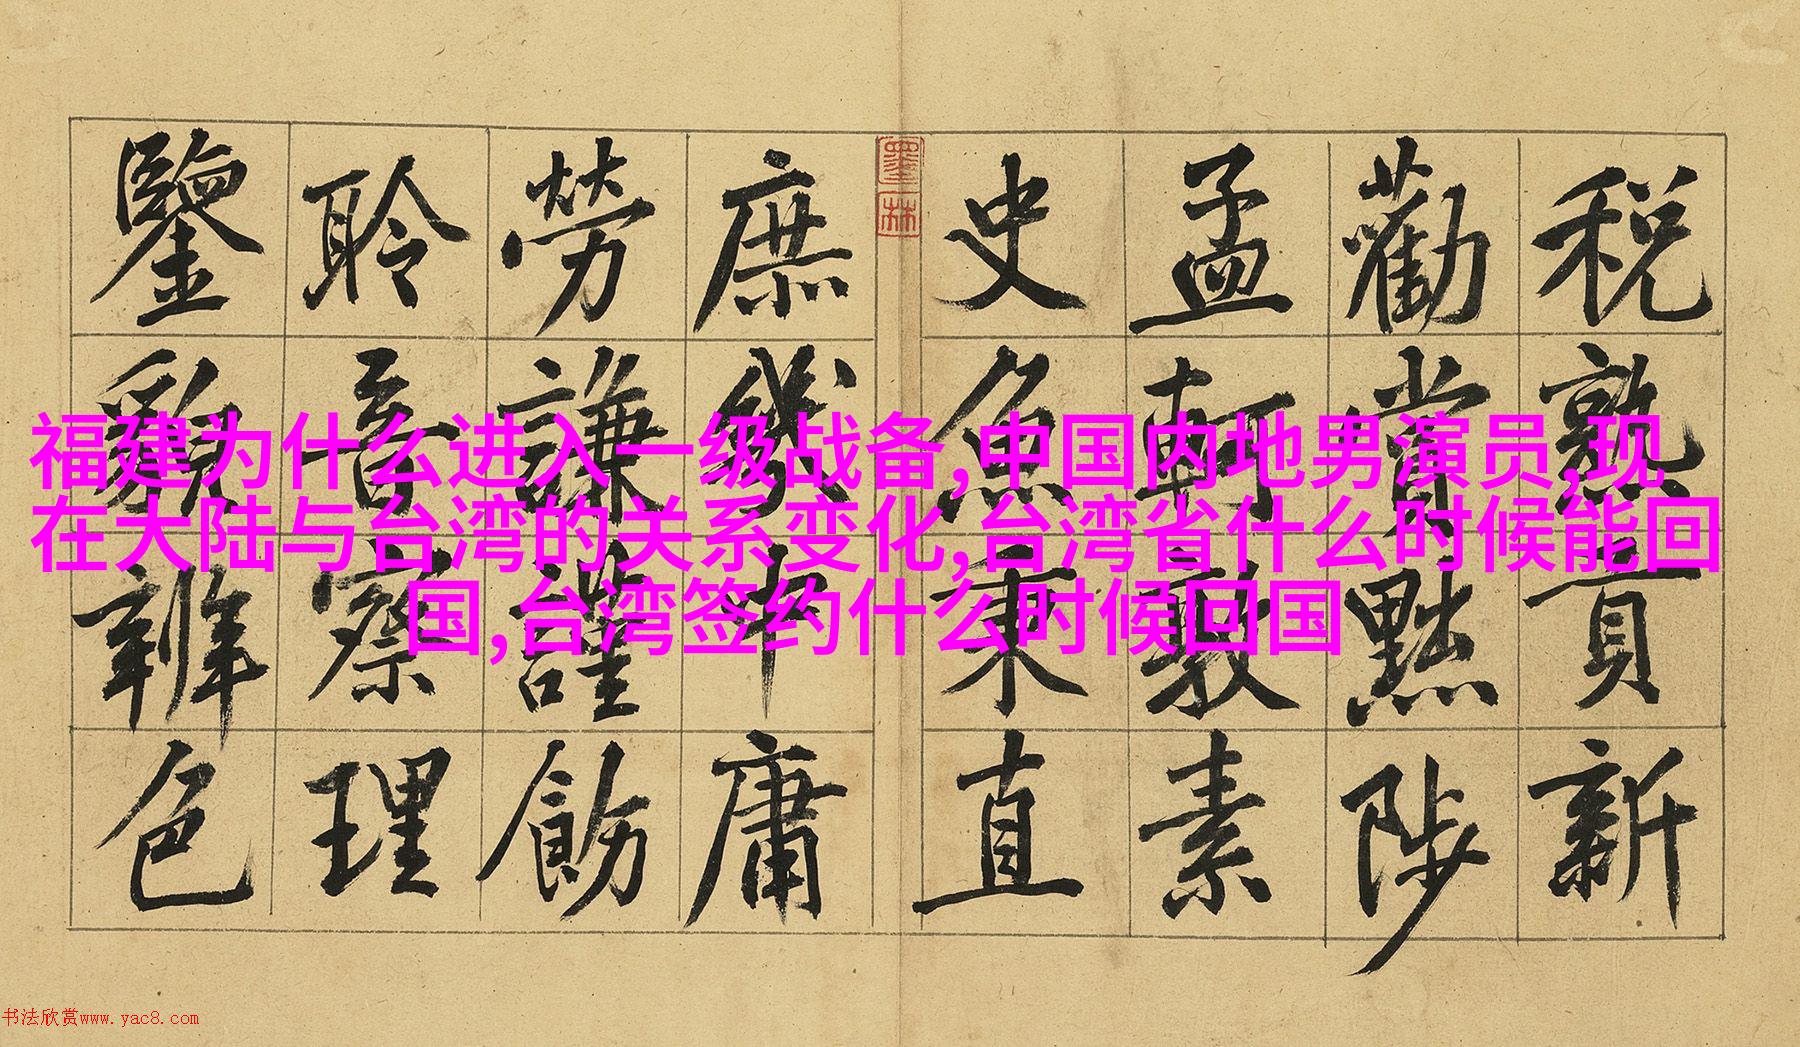 税熟貢新
勸賞黜陟
孟軻敦素
史魚秉直
墨林
庶幾中庸
勞謙謹飭
聆音察理
鑒貌辨色
福建为什么进入一级战备,中国内地男演员,现
在大陆与台湾的关系变化,台湾省什么时候能回
国,台湾签约什么时候回国
书法欣赏www.yac8.com